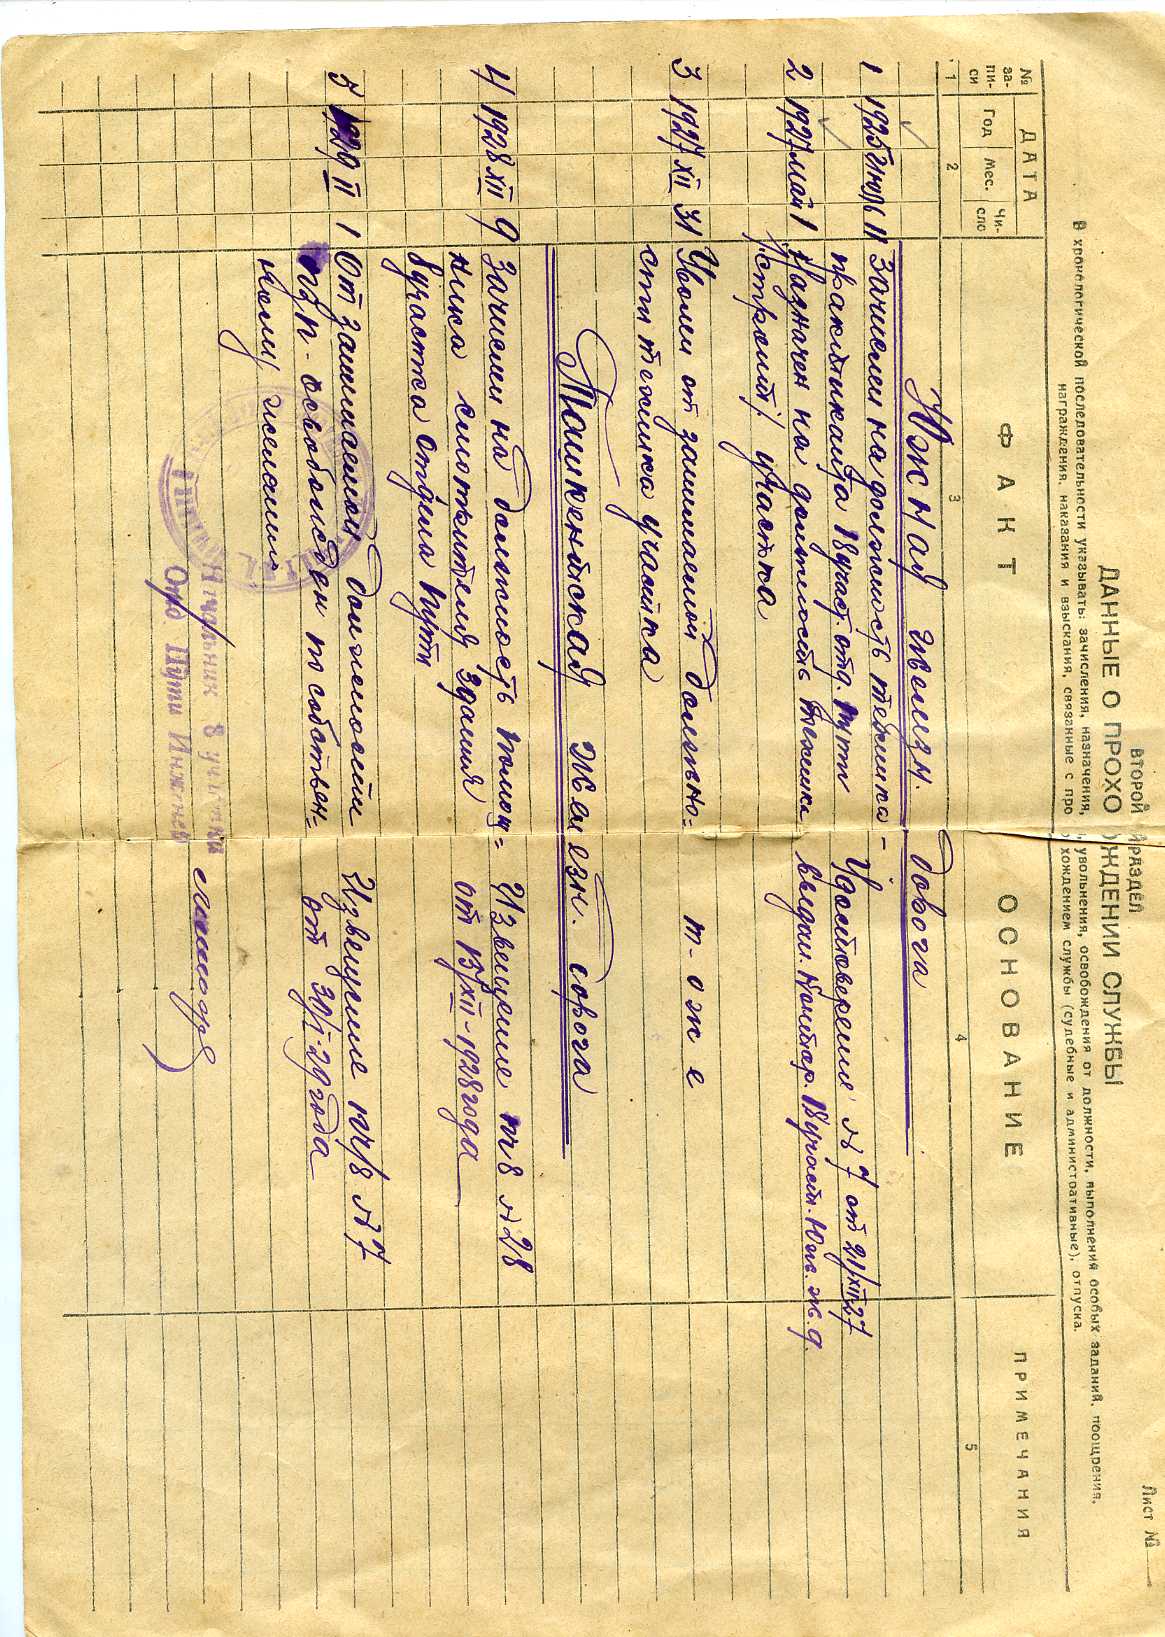 Лист №
ВТОРОЙ РАЗДЕЛ
ДАННЫЕ О ПРОХОЖДЕНИИ СЛУЖБЫ
В хронологической последовательности указывать: зачисления, назначения, увольнения, освобождения от должности, выполнения особых заданий, поощрения,
награждения, наказания и взыскания, связанные с прохождением службы (судебные и административные), отпуска.
№ за-пи-си ДАТА ФАКТ ОСНОВАНИЕ ПРИМЕЧАНИЯ
Год Мес. Чи-сло
1 2 3 4 5
Южная железн. дорога
1 1925 июль 11 Зачислен на должность техника-
практиканта 18 участ. отд. пути Удостоверение №7 от 21/XII-27
2 1927 май 1 Назначен на должность техника выдан. 18 участ. Юж. ж. д.
/строит/ участка
3 1927 XII 31 Уволен от занимаемой должно= т-о ж е
сти техника участка
Ташкентская железн. дорога
4 1928 XII 9 Зачислен на должность помощ= Извещение пч8 №28
ника смотрителя здания от 15/XII-1928 года
8 участка отдела пути
5 1929 II 1 От занимаемой должности Извещение пч/8 №7
освобожден по собствен= от 30/I-29 года
ному желанию
Начальник 8 участка
Отд. Пути Инженер